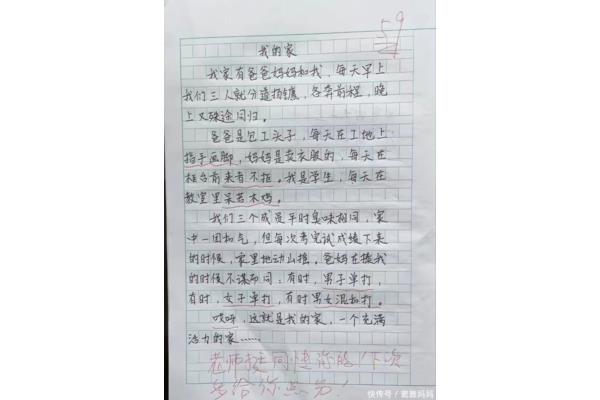 59
我的家
我家有爸爸妈妈和我，每天早上
我们三人就分道扬镳，各奔前程，晚
上又殊途同归。
爸爸是包工头子，每天在工地上
指手画脚，妈妈是卖衣服的，每天在
柜台前来者不拒。我是学生，每天在
教室里呆若木鸡。
我们三个成员平时臭味相同，家
中一团和气，但每次考完试成绩下来
的时候，家里地动山摇。爸妈在揍我
的时候不谋而同：有时，男子单打，
有时，女子单打，有时男女混和打。
哎呀，这就是我的家，一个充满
活力的家……
老师挺同情你的！下次
多给你点分！
快传号／素雅妈妈